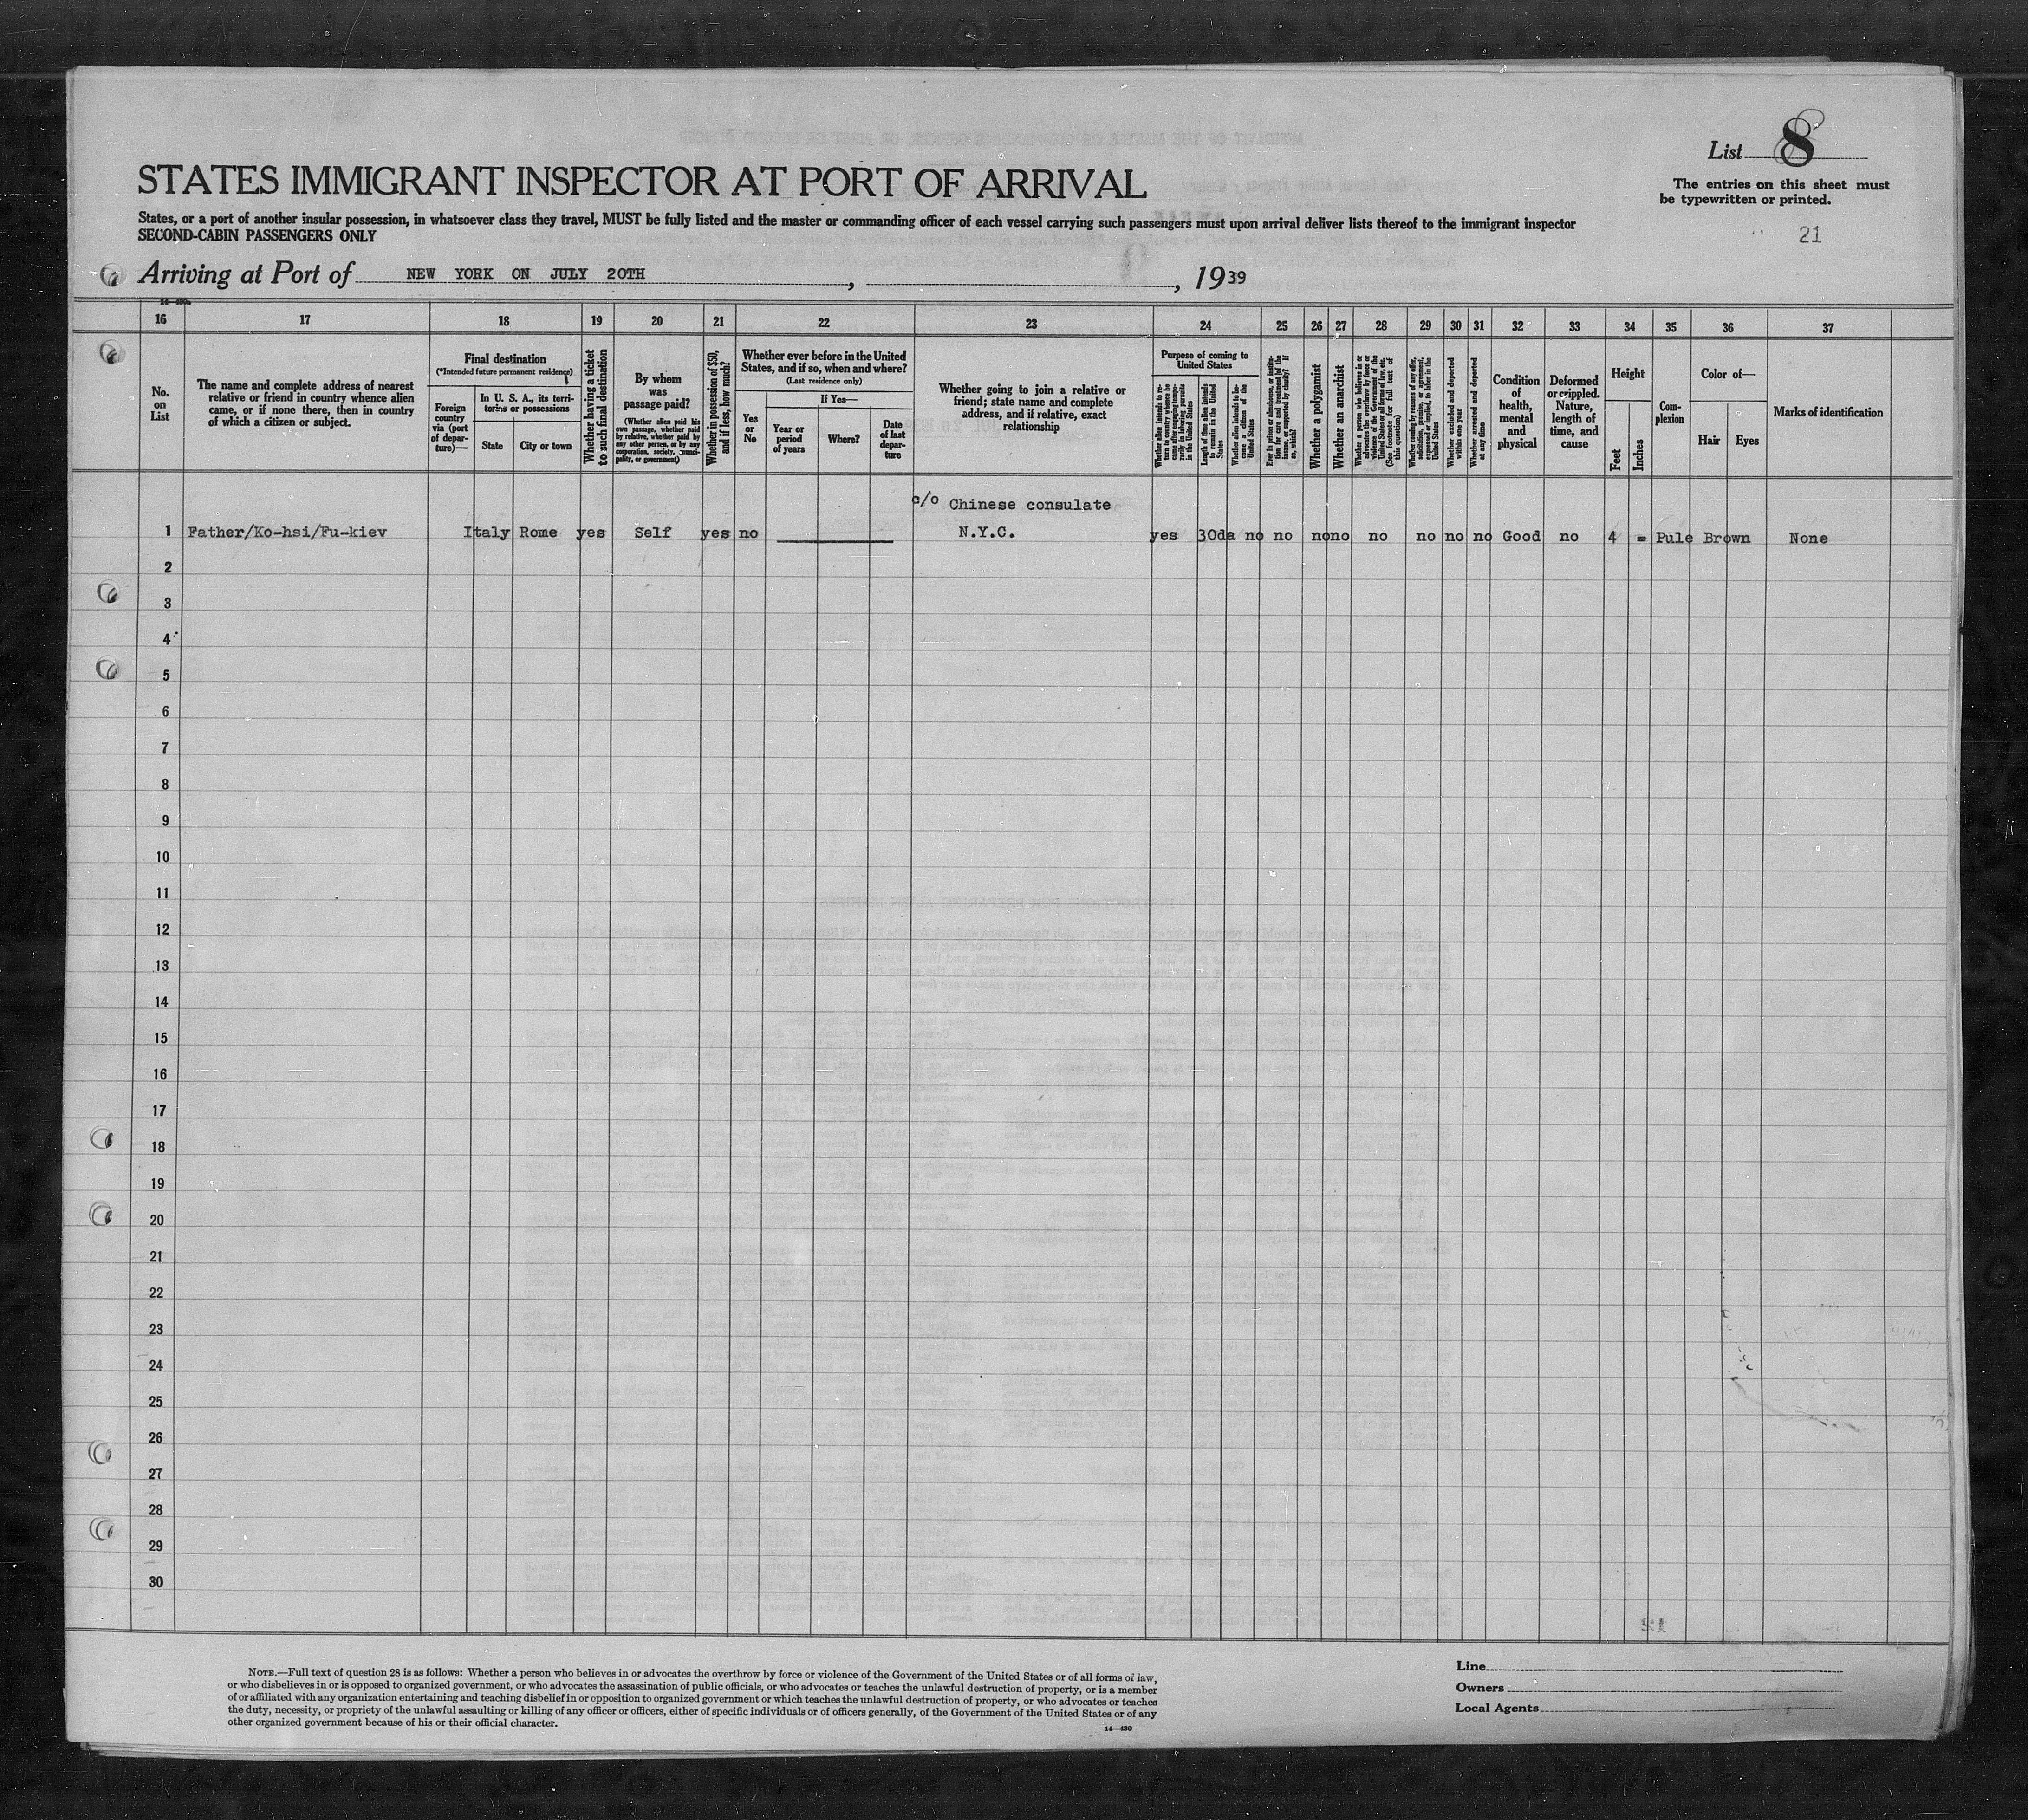 List 8
The entries on this sheet must
be typewritten or printed.
21
STATES IMMIGRANT INSPECTOR AT PORT OF ARRIVAL
States, or a port of another insular possession, in whatsoever class they travel, MUST be fully listed and the master or commanding officer of each vessel carrying such passengers must upon arrival deliver lists thereof to the immigrant inspector
SECOND-CABIN PASSENGERS ONLY
Arriving at Port of NEW YORK ON JULY 20TH , , 1939
16 17 18 19 20 21 22 23 24 25 26 27 28 29 30 31 32 33 34 35 36 37
No. on List
The name and complete address of nearest
relative or friend in country whence alien
came, or if none there, then in country
of which a citizen or subject.
Final destination
(*Intended future permanent residence)
Foreign country via (port of departure)—
In U. S. A., its territories or possessions
State
City or town
Whether having a ticket to such final destination
By whom was passage paid?
(Whether alien paid his own passage, whether paid by relative, whether paid by any other person, or by any corporation, society, municipality, or government)
Whether in possession of $50, and if less, how much?
Whether ever before in the United
States, and if so, when and where?
(Last residence only)
Yes or No
If Yes—
Year or period of years
Where?
Date of last departure
Whether going to join a relative or
friend; state name and complete
address, and if relative, exact
relationship
Purpose of coming to
United States
Length of time alien intends to remain in the United States
Whether alien intends to become a citizen of the United States
Whether a polygamist
Whether an anarchist
Whether excluded and deported within one year
Whether arrested and deported at any time
Condition of health, mental and physical
Deformed or crippled. Nature, length of time, and cause
Height
Feet
Inches
Complexion
Color of—
Hair
Eyes
Marks of identification
c/o Chinese consulate
1 Father/Ko-hsi/Fu-kiev Italy Rome yes Self yes no N.Y.C. yes 30da no no no no no no no no Good no 4 = Pule Brown None
2
3
4
5
6
7
8
9
10
11
12
13
14
15
16
17
18
19
20
21
22
23
24
25
26
27
28
29
30
NOTE.—Full text of question 28 is as follows: Whether a person who believes in or advocates the overthrow by force or violence of the Government of the United States or of all forms of law,
or who disbelieves in or is opposed to organized government, or who advocates the assassination of public officials, or who advocates or teaches the unlawful destruction of property, or is a member
of or affiliated with any organization entertaining and teaching disbelief in or opposition to organized government or which teaches the unlawful destruction of property, or who advocates or teaches
the duty, necessity, or propriety of the unlawful assaulting or killing of any officer or officers, either of specific individuals or of officers generally, of the Government of the United States or of any
other organized government because of his or their official character.
14—430
Line
Owners
Local Agents